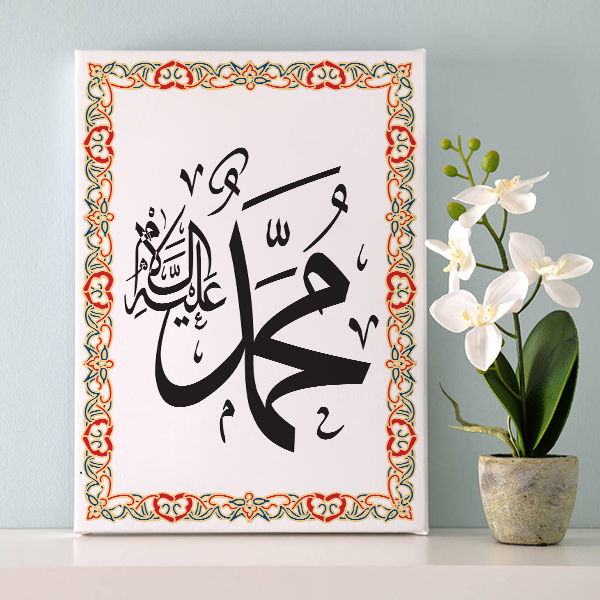 محمد عليه السلام